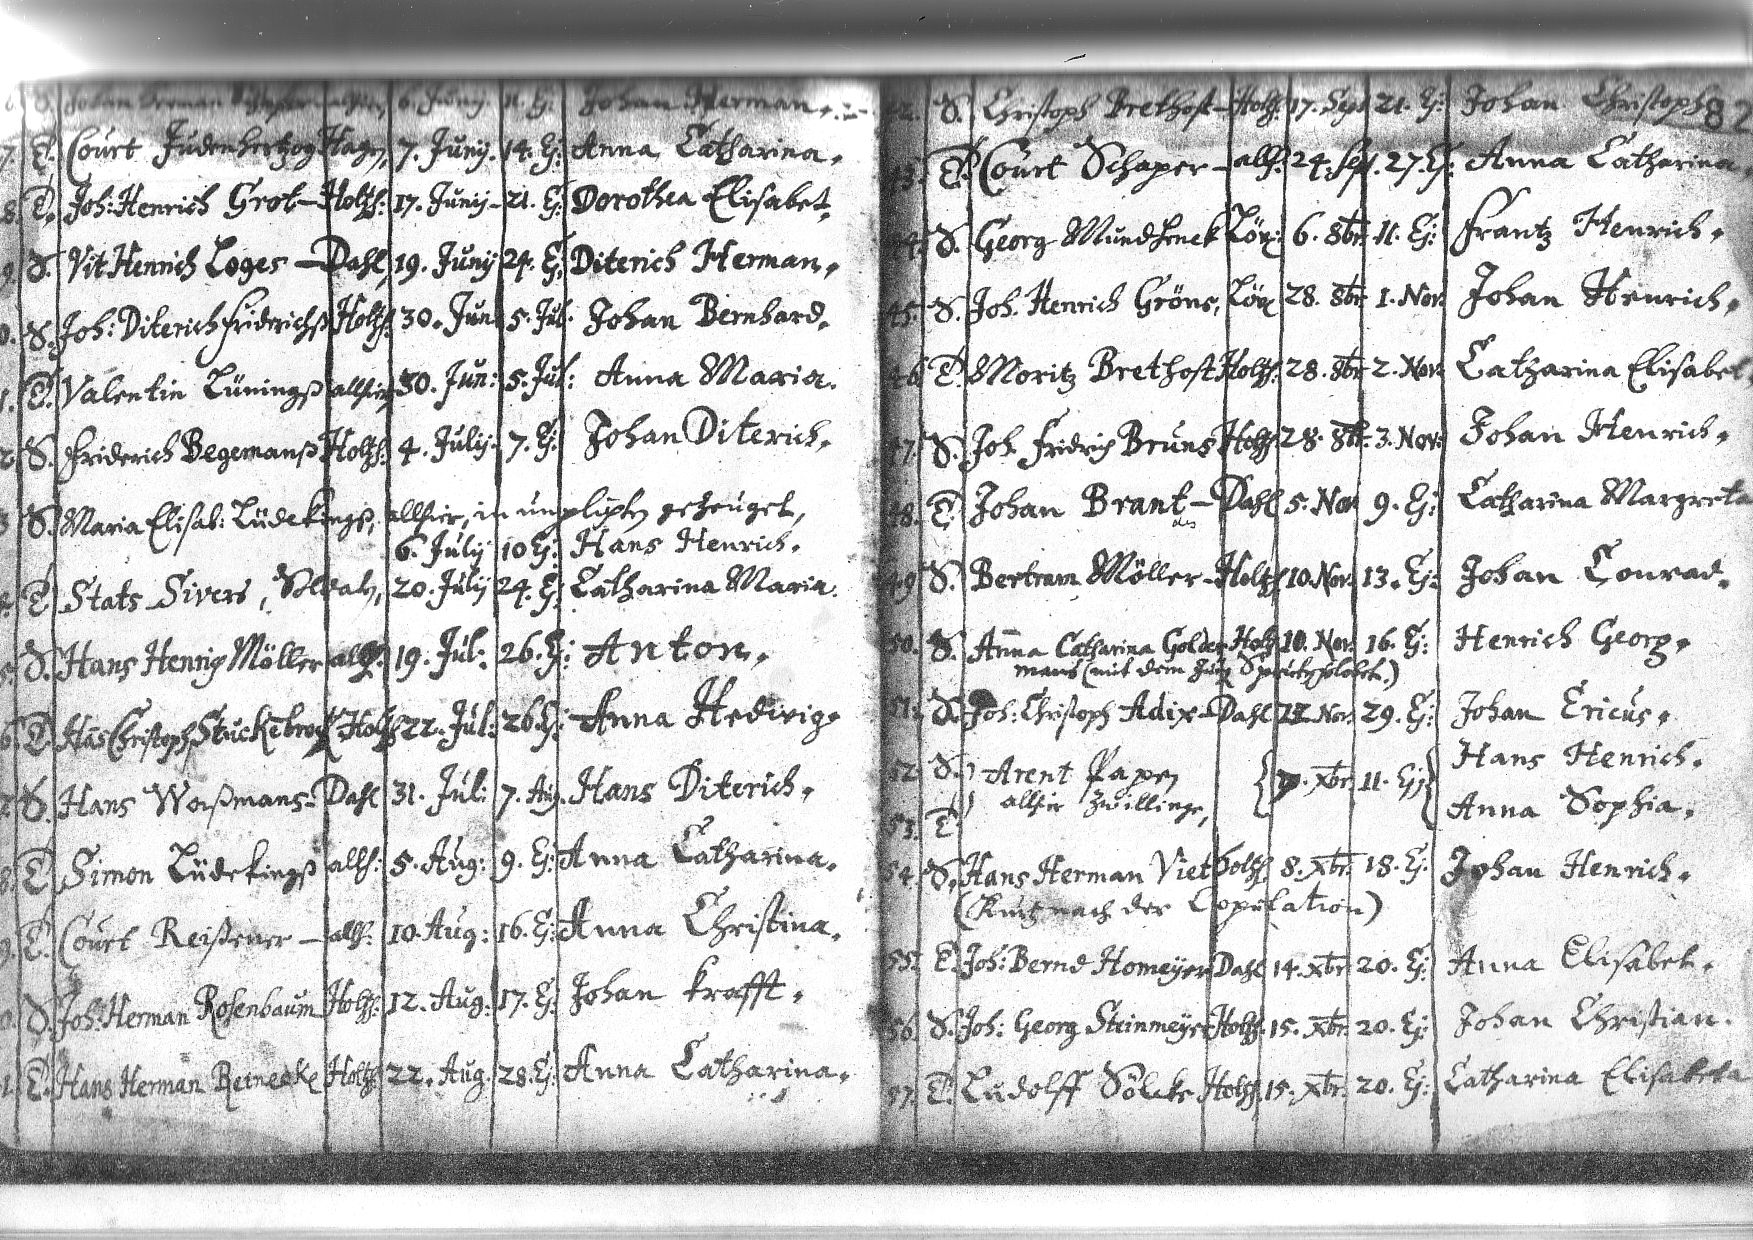 S. Johan Herman allhier, 6. Juny. 11. Ej: Johan Herman.
7. T. Court Judenhertzog Hagen, 7. Juny. 14. Ej: Anna Catharina.
8. T. Joh: Henrich Grot – Holtzh: 17. Juny – 21. Ej: Dorothea Elisabet.
9. S. Vit Henrich Loges – Dahl, 19. Juny 24. Ej: Diterich Herman.
0. S. Joh: Diterich Friderichß Holtzh: 30. Jun: 5. Jul: Johan Bernhard.
1. T. Valentin Lüningß allhier, 30. Jun: 5. Jul: Anna Maria.
2. S. Friderich Begemanß Holtzh: 4. July. 7. Ej: Johan Diterich.
3 S. Maria Elisab: Lüdekingß, allhier, in gezeuget,
6. July 10 Ej: Hans Henrich.
T. Stats Sivers, Soldat, 20. July 24. Ej: Catharina Maria.
5. S. Hans Henrich Möller allh: 19. Jul: 26. Ej: Anton.
6. T. Hãs Christoph Stuckebrock Holtzh: 22. Jul: 26. Ej: Anna Hedwig.
7. S. Hans Weißmans – Dahl 31. Jul: 7. Aug. Hans Diterich.
8. T. Simon Lüdekingß allh: 5. Aug: 9. Ej: Anna Catharina.
9. T. Court Reißener – allh: 10. Aug: 16. Ej: Anna Christina.
0. S. Joh: Herman Rosenbaum Holtzh: 12. Aug: 17. Ej: Johan Krafft.
1. T. Hans Herman Reinecke Holtzh: 22. Aug. 28. Ej: Anna Catharina.
82
42. S. Christoph Brethost – Holtzh: 17. Sept 21. Ej: Johan Christoph
43. T. Court Schaper – allh: 24. Sept. 27. Ej: Anna Catharina.
44. S. Georg Mundhenck 6. 8br. 11. Ej: Frantz Henrich.
45. S. Joh. Henrich Gröns, 28. 8br. 1. Nov. Johan Henrich.
46. T. Moritz Brethost Holtzh: 28. 8br. 2. Nov. Catharina Elisabet.
47. S. Joh. Fridrich Bruns Holtzh 28. 8br. 3. Nov: Johan Henrich.
48. T. Johan Brant – Dahl 5. Nov 9. Ej: Catharina Margreta
49 S. Bertram Möller – Holtzh 10. Nov. 13. Ej: Johan Conrad.
50. S. Anna Catharina Golder Holtzh 10. Nov. 16. Ej: Henrich Georg.
mans (mit dem
51. S. Joh: Christoph Adix – Dahl 22. Nov. 29. Ej: Johan Ericus.
52. S. Arent Papen 7. xbr. 11. Ej: Hans Henrich.
allhier Zwillinge,
53. T. Anna Sophia.
54. S. Hans Herman Viet Holtzh. 8. xbr. 18. Ej: Johan Henrich.
(Kurtz nach der Copulation)
55. T. Joh: Bernd Homeyer Dahl 14. xbr. 20. Ej: Anna Elisabet.
56. S. Joh: Georg Steinmeyer Holtzh. 15. xbr. 20. Ej: Johan Christian.
57. T. Ludolff Sölcke Holtzh. 15. xbr. 20. Ej: Catharina Elisabeta